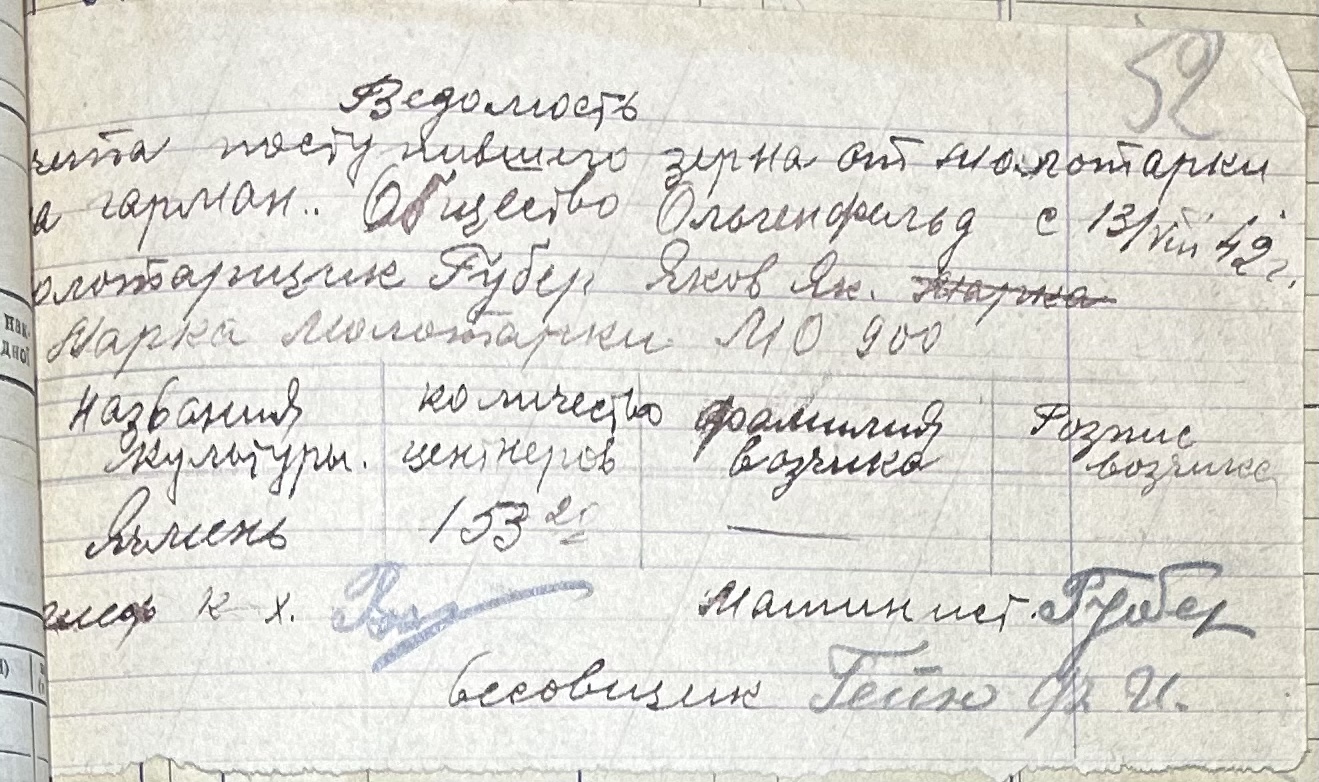 52
Ведомость
чета поступившего зерна от молотарки
а гарман.. Общество Ольгенфельд с 13/VIII 42 г.
олотарщик Губер Яков Як. Марка
Марка Молотарки МО 900
нак.
дной
Названия культуры. количество центнеров фамилия возчика Розпис возчика
Ячмень 153 21 —
к-х.
Машинист. Губер
весовщик Гейн